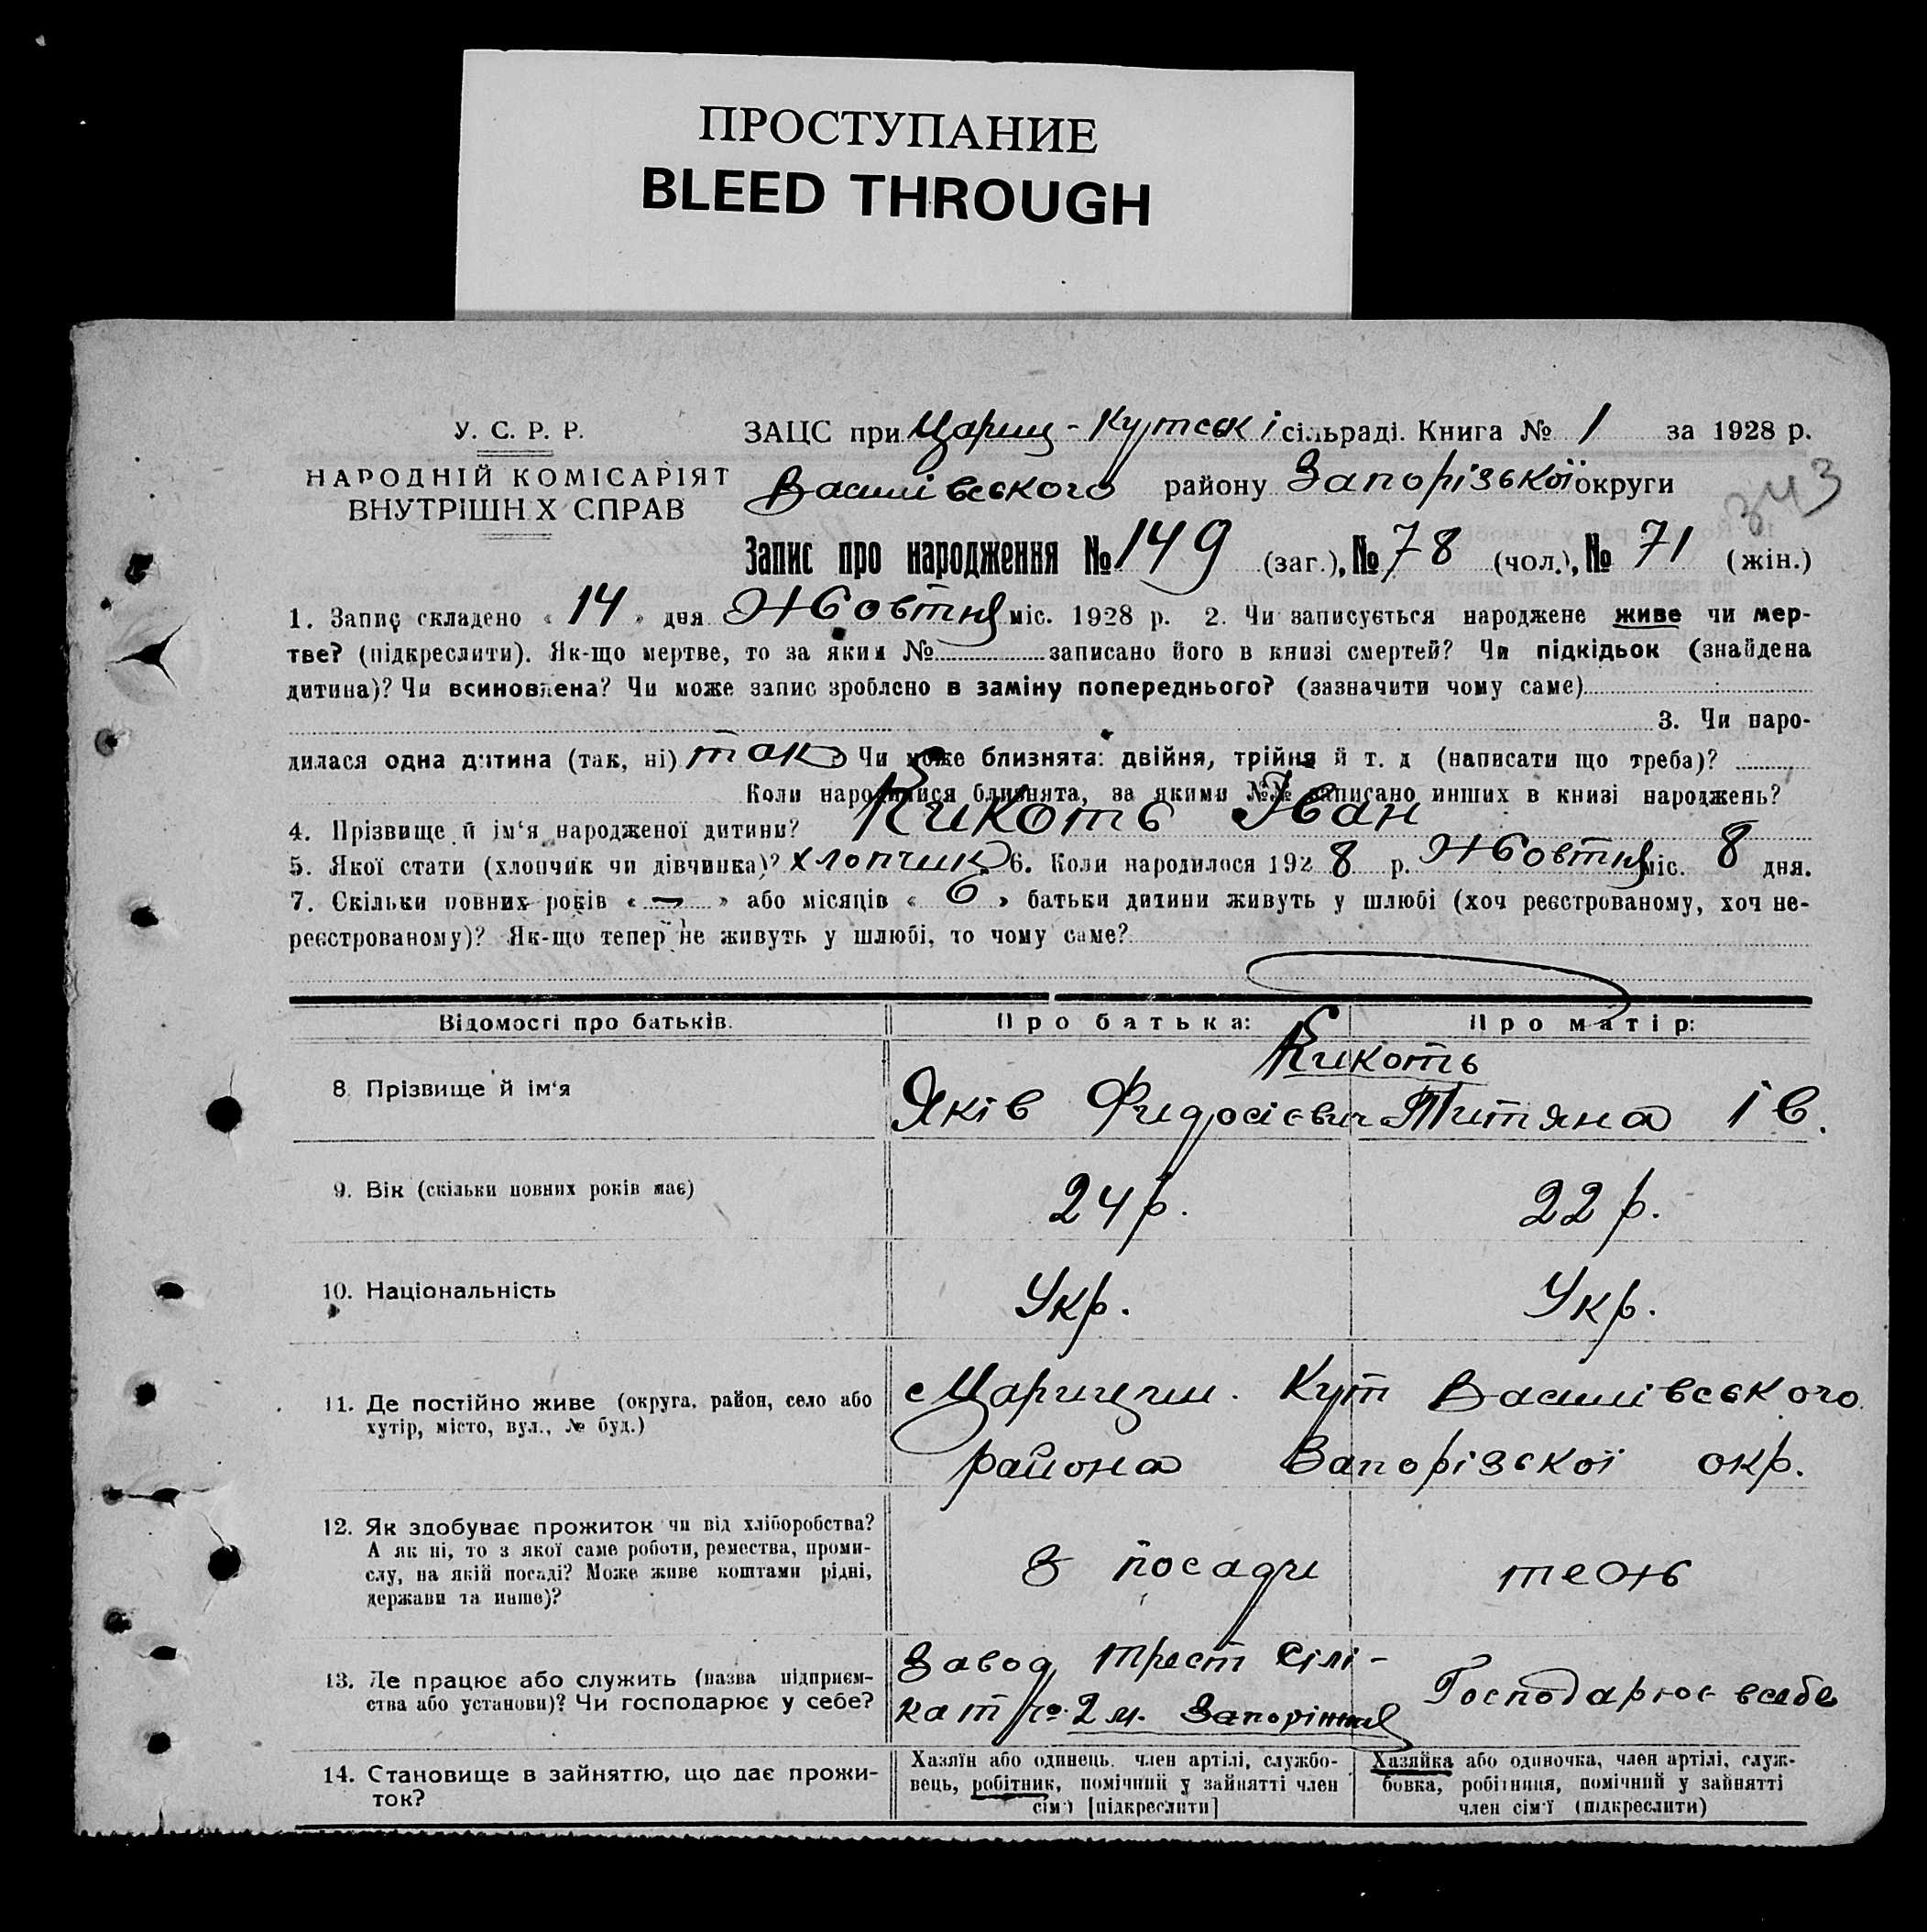 ПРОСТУПАНИЕ
BLEED THROUGH
У. С. Р. Р.
НАРОДНІЙ КОМІСАРІЯТ
ВНУТРІШН Х СПРАВ
ЗАЦС при Цариц-Кутськ і сільраді. Книга № 1 за 1928 р.
Василівського району Запорізької округи
343
Запис про народження № 149 (заг.), № 78 (чол.), № 71 (жін.)
1. Запис складено « 14 » дня Жовтня міс. 1928 р. 2. Чи записується народжене живе чи мер-
тве? (підкреслити). Як-що мертве, то за яким № записано його в книзі смертей? Чи підкідьок (знайдена
дитина)? Чи всиновлена? Чи може запис зроблено в заміну попереднього? (зазначити чому саме)
3. Чи наро-
дилася одна дитина (так, ні) так Чи може близнята: двійня, трійня й т. д (написати що треба)?
Коли народилися близнята, за якими №№ записано инших в книзі народжень?
4. Прізвище й ім‘я народженої дитини? Кикоть Іван
5. Якої стати (хлопчик чи дівчинка)? хлопчик 6. Коли народилося 192 8 р. Жовтня міс. 8 дня.
7. Скільки повних років « — » або місяців « 6 » батьки дитини живуть у шлюбі (хоч реєстрованому, хоч не-
реєстрованому)? Як-що тепер не живуть у шлюбі, то чому саме?
Відомості про батьків. Про батька: Про матір:
Кикоть
8 Прізвище й ім‘я Яків Фидосієвич Титяна Ів.
9. Вік (скільки повних років має) 24 р. 22 р.
10. Національність Укр. Укр.
11. Де постійно живе (округа, район, село або
хутір, місто, вул., № буд.)
с Царицин. Кут Василівського
района Запорізької окр.
12. Як здобуває прожиток чи від хліборобства?
А як ні, то з якої саме роботи, ремества, проми-
слу, на якій посаді? Може живе коштами рідні,
держави та инше)?
З посади теж
13. Де працює або служить (назва підприєм-
ства або установи)? Чи господарює у себе?
Завод трест Сілі-
кат № 2 м. Запоріжжя
Господарює всебе
14. Становище в зайняттю, що дає прожи-
ток?
Хазяїн або одинець. член артілі, службо-
вець, робітник, помічний у зайнятті член
сім‘ї [підкреслити]
Хазяйка або одиночка, член артілі, служ-
бовка, робітниця, помічний у зайнятті
член сім‘ї (підкреслити)